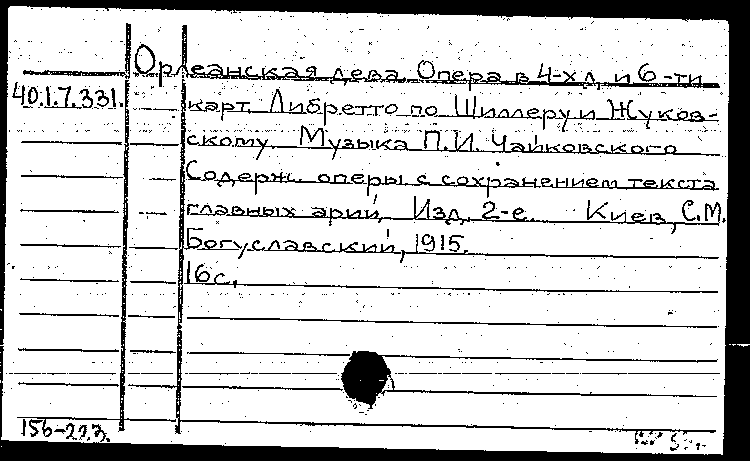 Орлеанская дева. Опера в 4-х д. и 6-ти
40.1.7.331. карт. Либретто по Шиллеру и Жуков-
скому. Музыка П.И. Чайковского
Содерж. оперы с сохранением текста
главных арий. Изд. 2-е. Киев, С.М.
Богуславский, 1915.
16 с.
156-223.